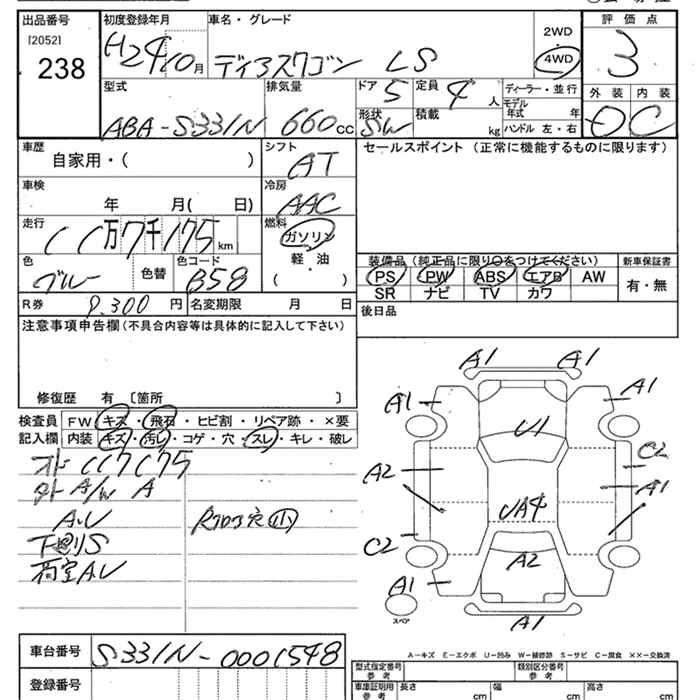 出品番号 初度登録年月 車名・グレード 評価点
[2052] H24年10月 ディアスワゴン LS 2WD 3
238 4WD
型式 排気量 ドア 5 定員 4人 ディーラー・並行 外装 内装
ABA-S331N 660cc 形状 SW 積載 kg モデル年式 年 D C
ハンドル 左・右
車歴 シフト セールスポイント (正常に機能するものに限ります)
自家用・( ) AT
車検 冷房
年 月( 日) AAC
走行 燃料
11万7千175km ガソリン
色 色替 色コード 軽油 装備品 (純正品に限り○をつけてください) 新車保証書
ブルー B58 ・ PS PW ABS エアB AW 有・無
( ) SR ナビ TV カワ
R券 9,300円 名変期限 月 日 後日品
注意事項申告欄 (不具合内容等は具体的に記入して下さい)
修復歴 有 〔箇所 〕
検査員 FW キズ・飛石・ヒビ割・リペア跡・×要
記入欄 内装 キズ・汚レ・コゲ・穴・スレ・キレ・破レ
オド 117175
外 A/W A
A.U
下回りS
荷室A.U
A1 A1
A1 A1
U1
C2
A2 A1
UA4
C2
A2
A1
スペア
A1
A-キズ E-エクボ U-凹み W-補修跡 S-サビ C-腐食 ××-交換済
車台番号 S331N-0001548
登録番号
型式指定番号 参考 類別区分番号 参考
車庫証明用 参考 長さ cm 幅 cm 高さ cm